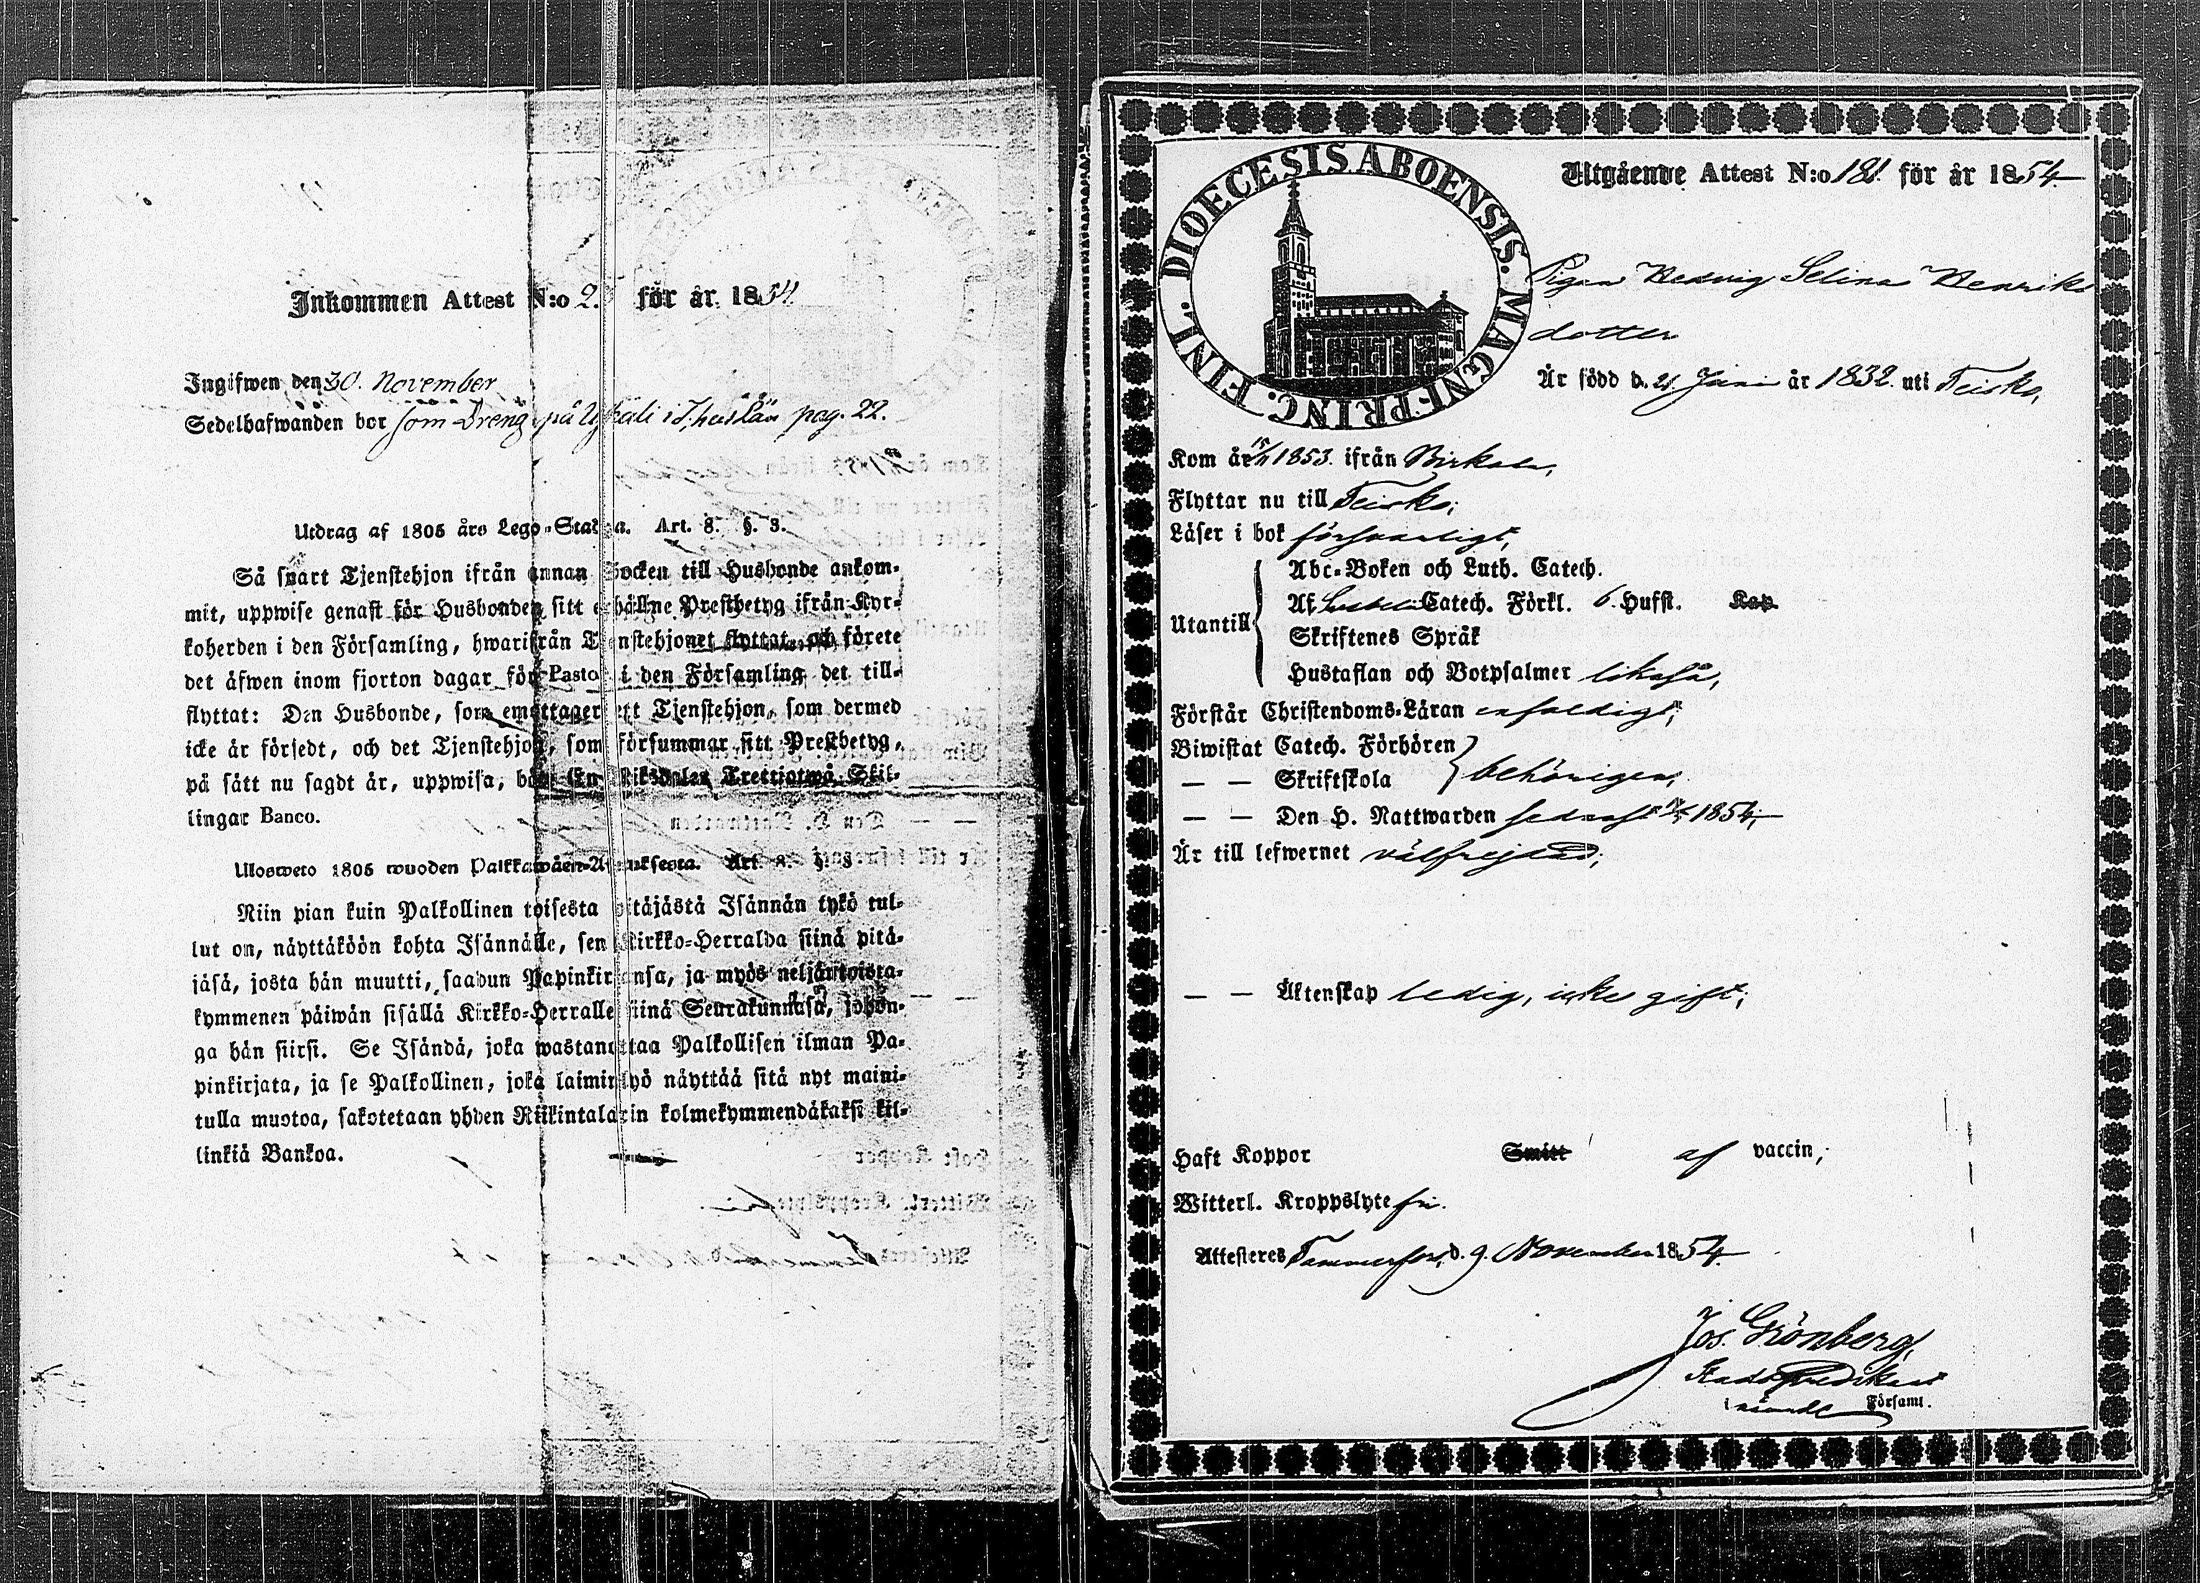 Inkommen Attest N:o 2. för år 1854.
Ingifwen den 30. November
Sedelhafwanden bor som Dreng på i pag. 22.
Utdrag af 1805 års Lego-Stadga. Art. 8. §. 3.
Så snart Tjenstehjon ifrån annan Socken till Husbonde ankom-
mit, uppwise genast för Husbonden sitt erhållne Prestbetyg ifrån Kyr-
koherden i den Församling, hwarifrån Tjenstehjonet flyttat, och förete
det äfwen inom fjorton dagar för Pastor i den Församling det till-
flyttat: Den Husbonde, som emottager ett Tjenstehjon, som dermed
icke är försedt, och det Tjenstehjon, som försummar sitt Prestbetyg,
på sätt nu sagdt är, uppwisa, böte En Riksdaler Trettiotwå Skil-
lingar Banco.
Ulosweto 1805 wuoden Palkkawäen-Asetuksesta. Art. 8. §. 3
Niin pian kuin Palkollinen toisesta pitäjästä Isännän tykö tul-
lut on, näyttäköön kohta Isännälle, sen Kirkko-Herralda siinä pitä-
jäsä, josta hän muutti, saadun Papinkirjansa, ja myös neljäntoista-
kymmenen päiwän sisällä Kirkko-Herralle siinä Seurakunnasa, johon-
ga hän siirsi. Se Isändä, joka wastanottaa Palkollisen ilman Pa-
pinkirjata, ja se Palkollinen, joka laiminlyö näyttää sitä nyt maini-
tulla muotoa, sakotetaan yhden Riikintalarin kolmekymmendäkaksi kil-
linkiä Bankoa.
DIOECESIS ABOENSIS. MAGNI PRINC. FINL.
Utgående Attest N:o 181. för år 1854.
Pigan Hedvig Selina Henriks
dotter
Är född d. 21 Juni år 1832. uti Teisko,
Kom år 1853. ifrån Birkala,
Flyttar nu till Teisko;
Läser i bok försvarligt,
Abc-Boken och Luth. Catech.
Utantill Af Catech. Förkl. 6. Hufst. Kap.
Skriftenes Språk
Hustaflan och Botpsalmer likaså,
Förstår Christendoms-Läran enfaldigt;
Biwistat Catech. Förhören
— — Skriftskola behörigen,
— — Den H. Nattwarden sednast 1854;
Är till lefwernet välfrejdad;
— — Äktenskap ledig, icke gift;
Haft Koppor Smitt af vaccin,
Witterl. Kroppslyte fri.
Attesteres Tammerfors, d. 9. November 1854.
Jos. Grönberg,
Stads Predikant
i Församl.